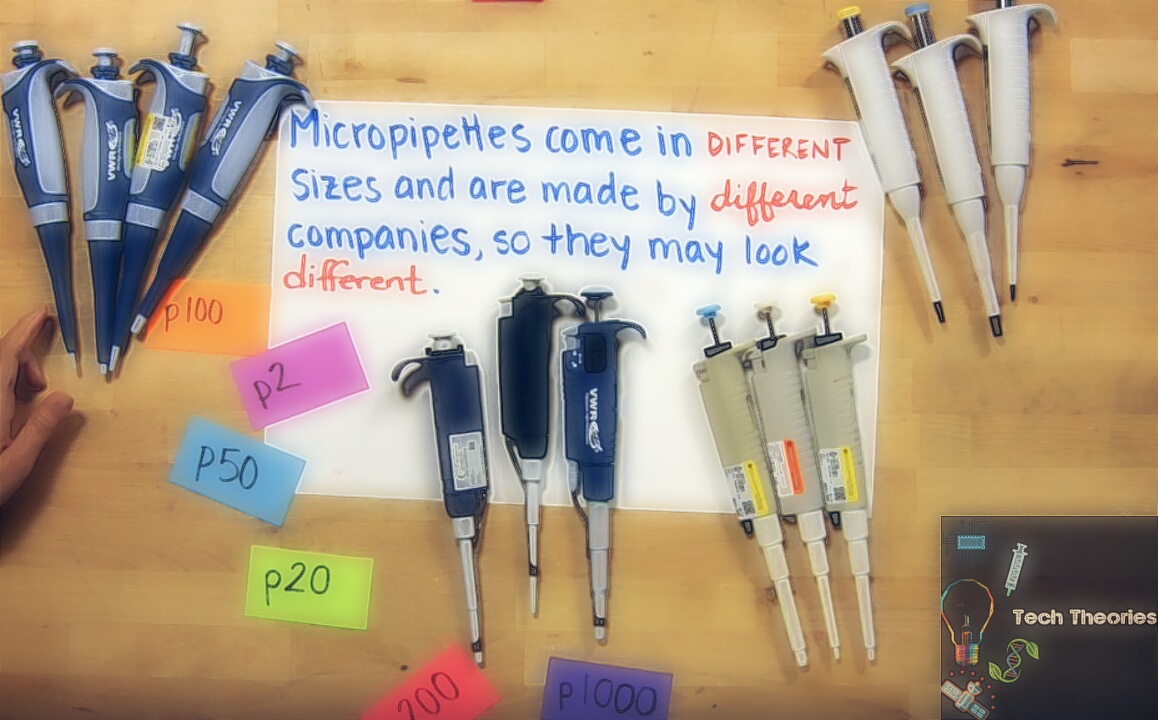 Micropipettes come in DIFFERENT
sizes and are made by different
companies, so they may look
different.
p100
p2
P50
p20
200
p1000
VWR
VWR
VWR
VWR
VWR
Tech Theories